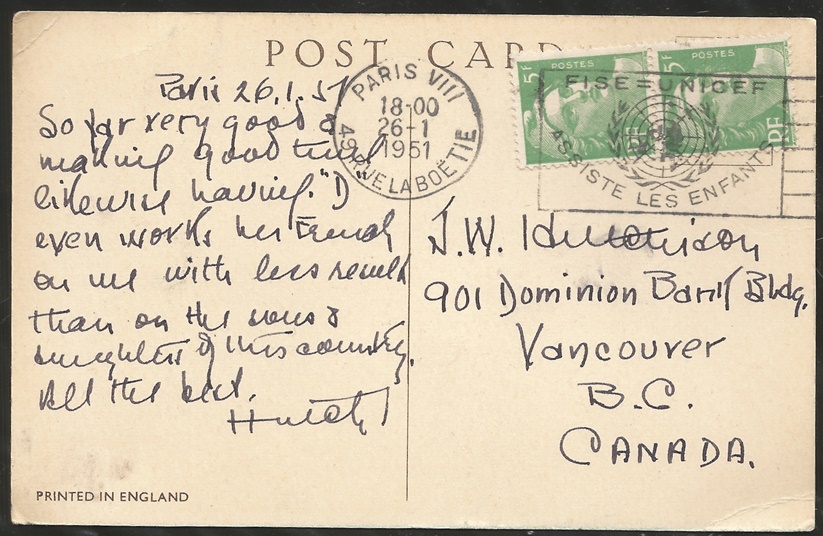 POST CARD
Paris 26.1.51
So far very good &
making good time
likewise having. "D
even works her French
on me with less result
than on the sons &
daughters of this country.
All the best.
Hutch
PRINTED IN ENGLAND
PARIS VIII
18-00
26-1
1951
49 R. DE LA BOËTIE
5F POSTES RF
5F POSTES RF
FISE=UNICEF
ASSISTE LES ENFANTS
J.W. Hutchison
901 Dominion Bank Bldg.
Vancouver
B.C.
CANADA.